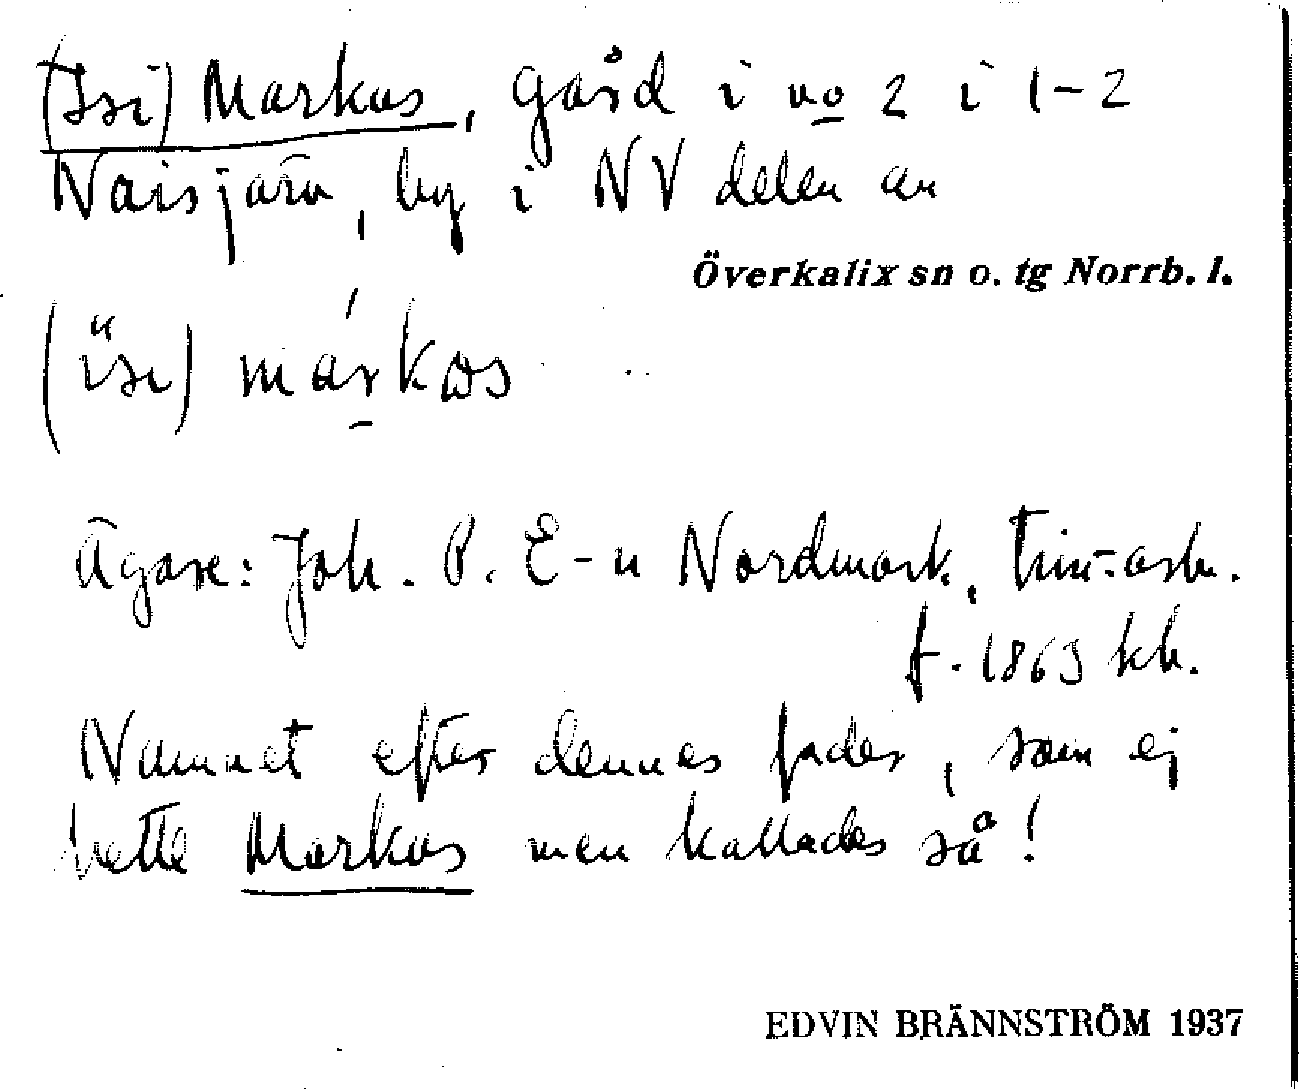 (Isi) Markus, gård i no 2 i 1-2
Naisjärv, by i NV delen av
Överkalix sn o. tg Norrb. l.
(ïsı) márkøs
Ägare: Joh. P. E-n Nordmark, tim-arb.
f. 1863 kb.
Namnet efter dennes fader, som ej
hette Markus men kallades så!
EDVIN BRÄNNSTRÖM 1937